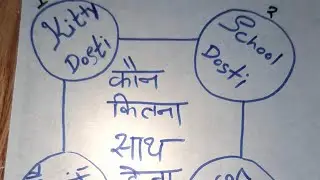 1
2
Kitty
Dosti
School
Dosti
कौन
कितना
साथ
देता